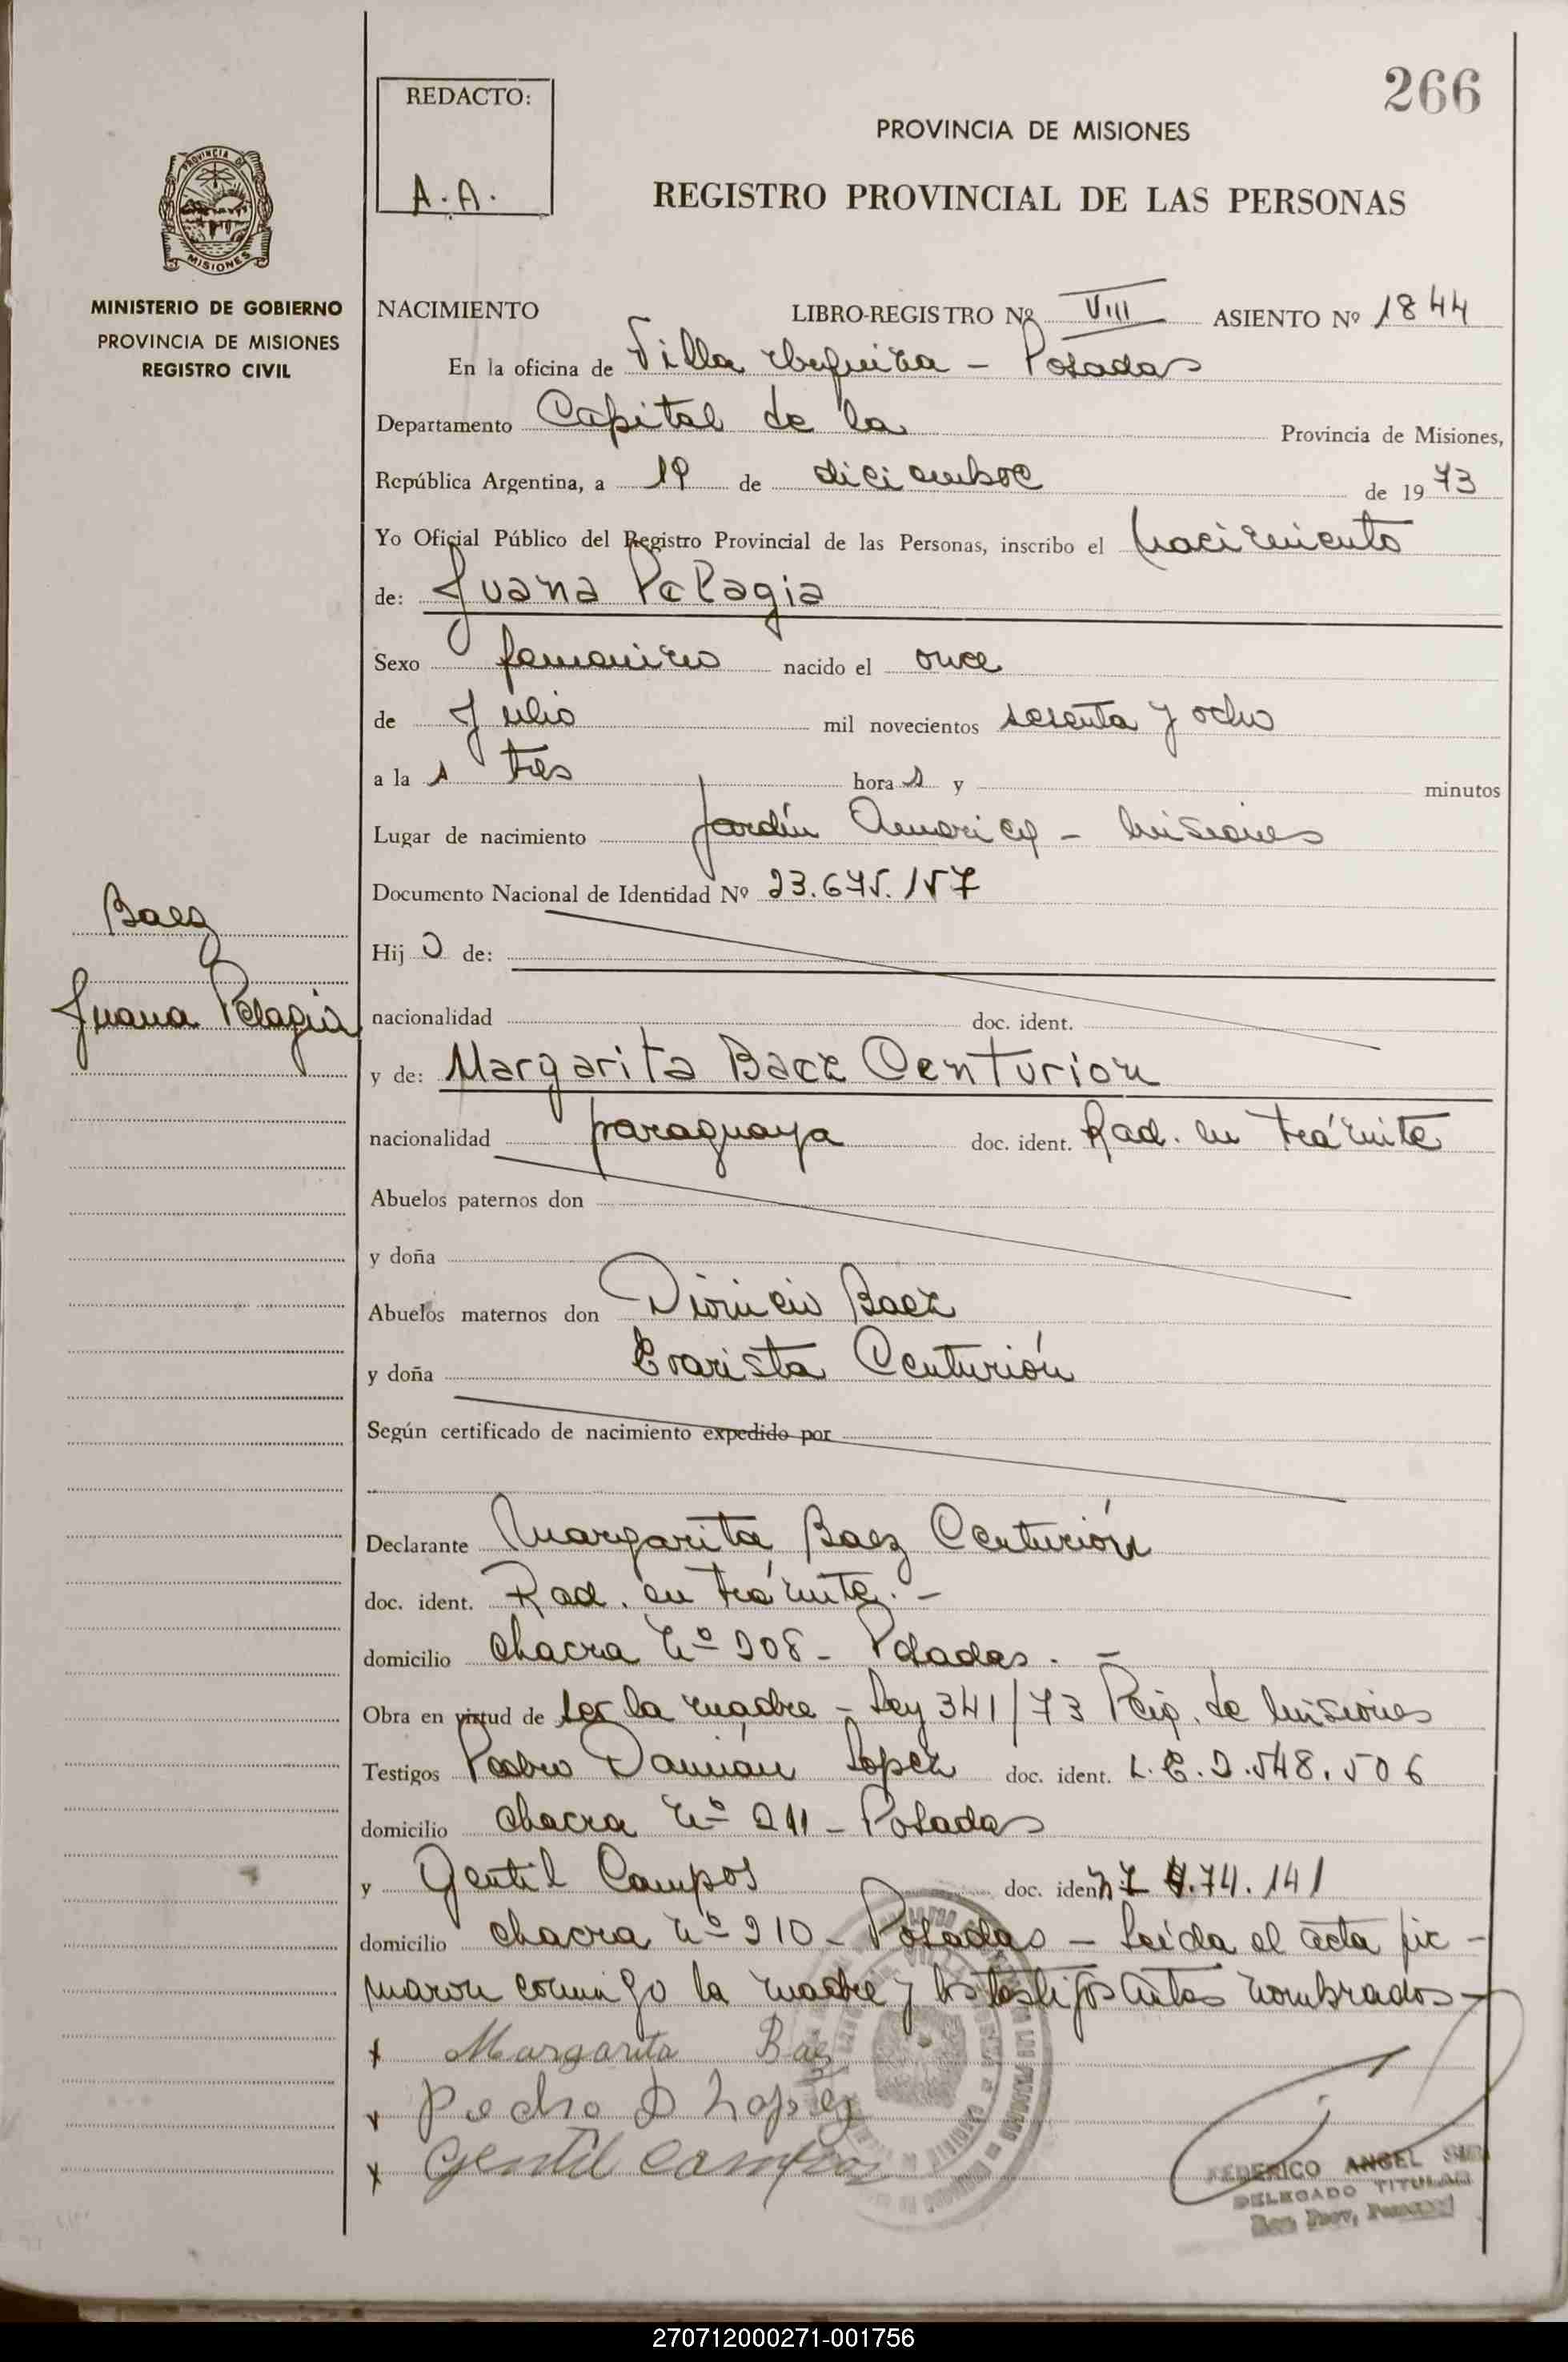 266
REDACTO:
A.A.
PROVINCIA DE MISIONES
REGISTRO PROVINCIAL DE LAS PERSONAS
PROVINCIA DE
MISIONES
MINISTERIO DE GOBIERNO
PROVINCIA DE MISIONES
REGISTRO CIVIL
NACIMIENTO LIBRO-REGISTRO Nº VIII ASIENTO Nº 1844
En la oficina de Villa Urquiza - Posadas
Departamento Capital de la Provincia de Misiones,
República Argentina, a 19 de diciembre de 1973
Yo Oficial Público del Registro Provincial de las Personas, inscribo el nacimiento
de: Juana Pelagia
Sexo femenino nacido el once
de Julio mil novecientos sesenta y ocho
a la s tres hora s y minutos
Lugar de nacimiento Jardín America - Misiones
Documento Nacional de Identidad Nº 23.675.157
Baez
Juana Pelagia
Hij de:
nacionalidad doc. ident.
y de: Margarita Baez Centurion
nacionalidad paraguaya doc. ident. Rad. en trámite
Abuelos paternos don
y doña
Abuelos maternos don Dionicio Baez
y doña Evarista Centurión
Según certificado de nacimiento expedido por
Declarante Margarita Baez Centurión
doc. ident. Rad. en trámite. -
domicilio chacra Nº 208 - Posadas. -
Obra en virtud de ser la madre - Ley 341/73 Rep. de Misiones
Testigos Pedro Damián Lopez doc. ident. L.E. 2.548.506
domicilio chacra Nº 211 - Posadas
y Gentil Campos doc. ident. 74.141
domicilio chacra Nº 210 - Posadas - Leída el acta fir-
maron conmigo la madre y los testigos antes nombrados -
x Margarita Baez
x Pedro D Lopez
x Gentil Campos
FEDERICO ANGEL
DELEGADO TITULAR
270712000271-001756